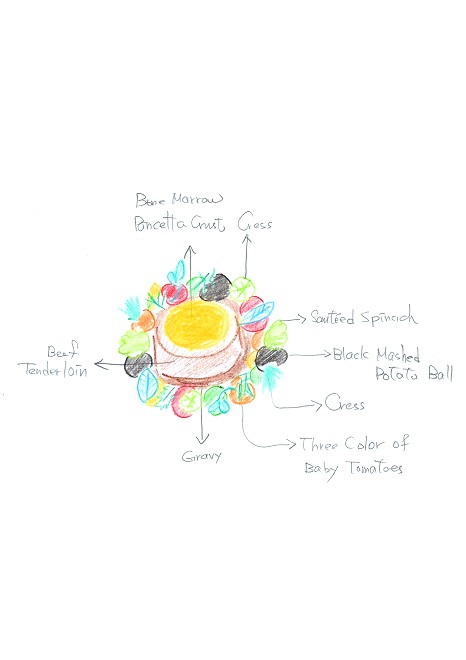 Bone Marrow
Pancetta Crust
Cress
Sauteed Spinach
Beef
Tenderloin
Black Mashed
Potato Ball
Cress
Three Color of
Baby Tomatoes
Gravy